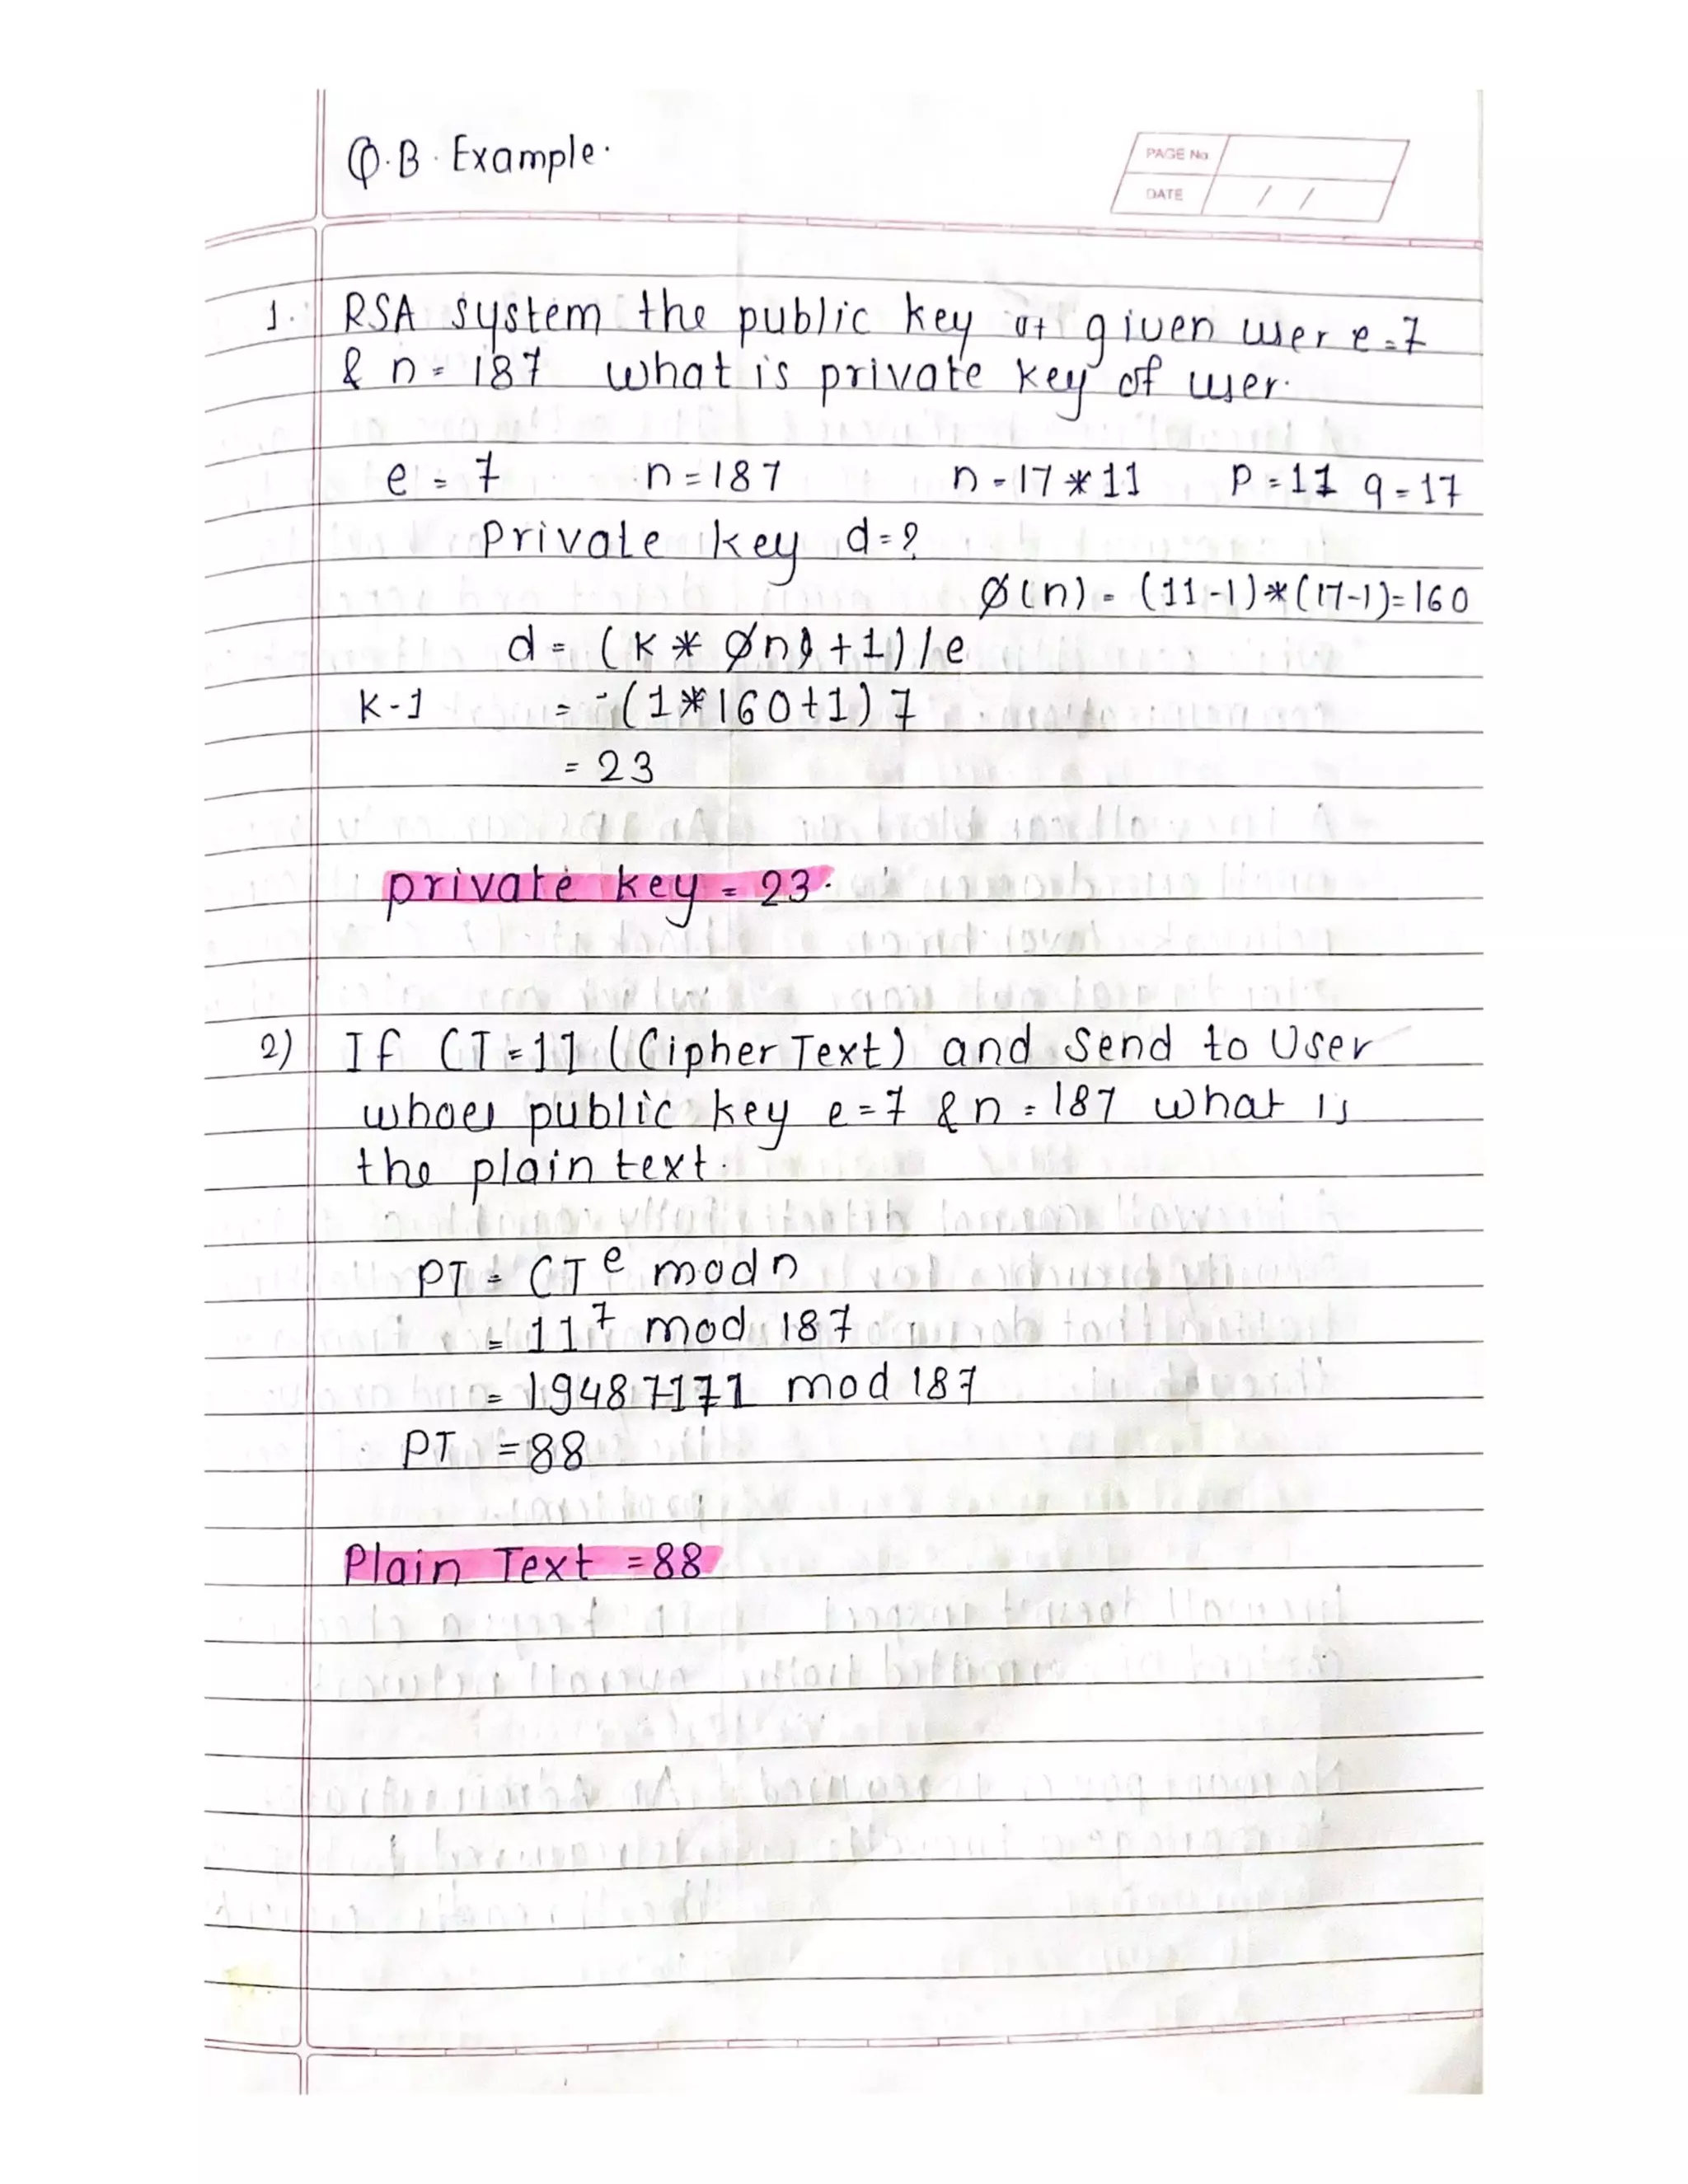 Q.B. Example.
PAGE No
DATE / /
1. RSA system the public key of given user e=7
& n=187 what is private key of user.
e=7 n=187 n=17*11 P=11 q=17
Private key d=?
Ø(n)=(11-1)*(17-1)=160
d=(K* Øn)+1)/e
K-1 =-(1*160+1)7
=23
private key=23.
2) If CT=11 (Cipher Text) and Send to User
whoes public key e=7 & n=187 what is
the plain text.
PT=CT^e mod n
=11^7 mod 187
=19487171 mod 187
PT =88
Plain Text =88